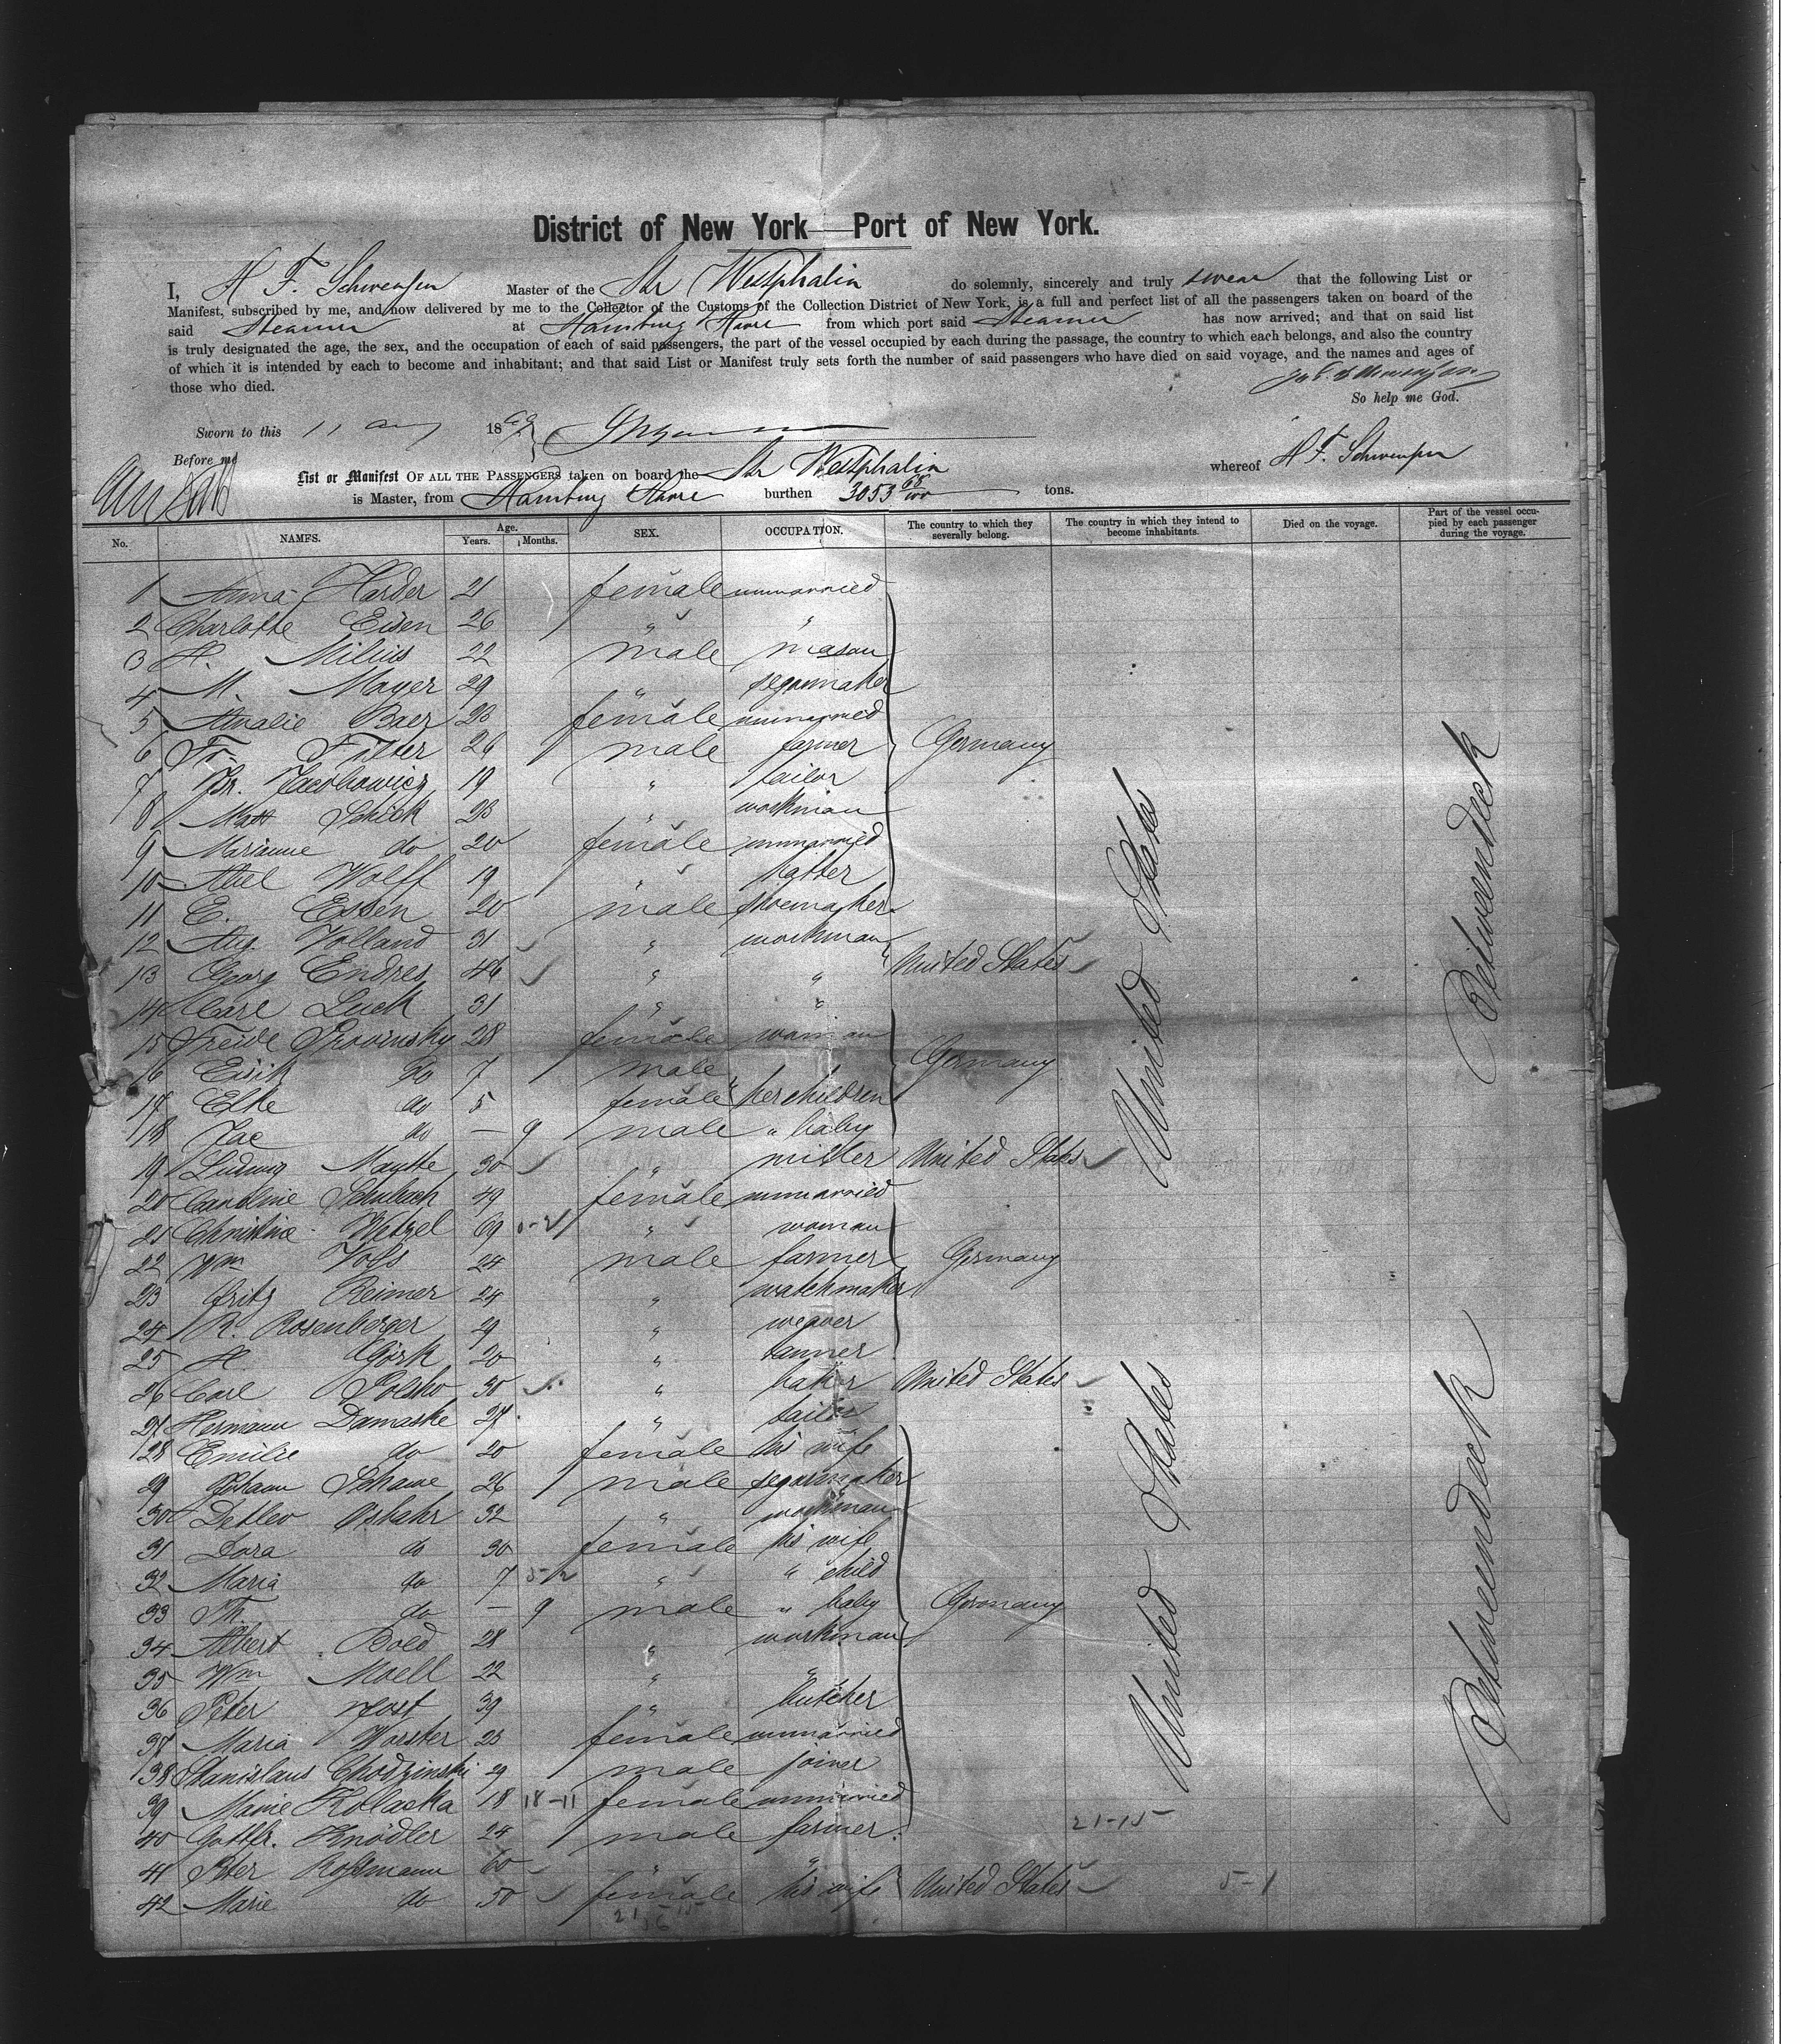 District of New York—Port of New York.
I, H. F. Schwensen Master of the Str Westphalia do solemnly, sincerely and truly swear that the following List or
Manifest, subscribed by me, and now delivered by me to the Collector of the Customs of the Collection District of New York, is a full and perfect list of all the passengers taken on board of the
said Steamer at Hamburg & Havre from which port said Steamer has now arrived; and that on said list
is truly designated the age, the sex, and the occupation of each of said passengers, the part of the vessel occupied by each during the passage, the country to which each belongs, and also the country
of which it is intended by each to become and inhabitant; and that said List or Manifest truly sets forth the number of said passengers who have died on said voyage, and the names and ages of
those who died.
So help me God.
Sworn to this 11 Aug 1869
Before me
List or Manifest OF ALL THE PASSENGERS taken on board the Str Westphalia whereof H. F. Schwensen
is Master, from Hamburg & Havre burthen 3053 68/100 tons.
No. NAMES. Age. Years. Months. SEX. OCCUPATION. The country to which they severally belong. The country in which they intend to become inhabitants. Died on the voyage. Part of the vessel occupied by each passenger during the voyage.
1 Anna Harder 21 female unmarried
2 Charlotte Eisen 26 " "
3 H. Milius 22 male mason
4 M. Mayer 29 " segarmaker
5 Amalie Baer 23 female unmarried
6 Fr. Filter 26 male farmer Germany
7 Br. Jacobowicz 19 " tailor
8 Matt Schick 23 " workman
9 Marianne do 20 female unmarried
10 Abel Wolff 19 " hatter
11 E. Essen 20 male shoemaker
12 Aug. Volland 31 " workman
13 Georg Endres 46 " " United States
14 Carl Luck 31 " "
15 Freide Provinsky 28 female woman Germany
16 Eisik do 7 male
17 Elke do 5 female " her children
18 Jac do — 9 male " baby
19 Ludwig Maytte 30 " miller United States
20 Caroline Schubach 49 female unmarried
21 Christine Wetzel 69 " woman
22 Wm Voss 24 male farmer Germany
23 Fritz Reimer 24 " watchmaker
24 R. Rosenberger 29 " weaver
25 H Görk 20 " tanner
26 Carl Polsko 30 " baker United States
27 Hermann Damaske 27 " tailor
28 Emilie do 20 female his wife
29 Johann Schame 26 male segarmaker
30 Detlev Osbahr 32 " workman
31 Dora do 30 female his wife
32 Maria do 7 " " child
33 Th. do — 9 male " baby Germany
34 Albert Bold 28 " workman
35 Wm Moell 22 " "
36 Peter Jost 39 " butcher
37 Maria Worster 23 female unmarried
38 Stanislaus Chodzinski 29 male joiner
39 Marie Kolaska 18 18-11 female unmarried
40 Gottfr. Knödler 24 male farmer 21-15
41 Peter Rossmann 60 " "
42 Marie do 50 female his wife United States 5-1
United States
Betweendeck
United States
Betweendeck